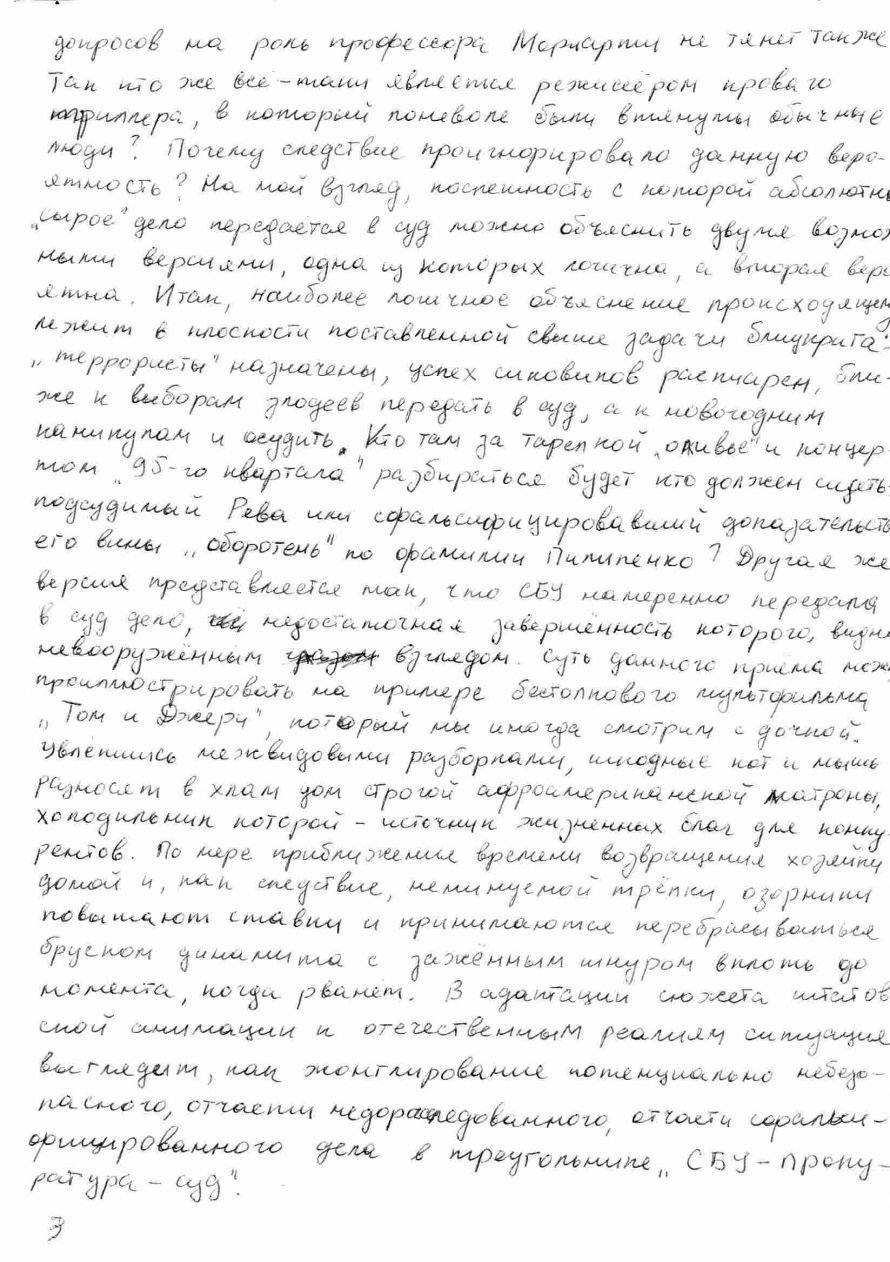 допросов на роль профессора Мориарти не тянет также
Так кто же всё-таки является режиссёром кроваго
триллера, в который поневоле были втянуты обычные
люди? Почему следствие проигнорировало данную веро-
ятность? На мой взгляд, поспешность с которой абсолютно
„сырое" дело передаётся в суд можно объяснить двумя возмож
ными версиями, одна из которых логична, а вторая веро
ятна. Итак, наиболее логичное объяснение происходящему
лежит в плоскости поставленной свыше задачи блицкрига:
„террористы" назначены, успех силовиков распиарен, бли-
же к выборам злодеев передать в суд, а к новогодним
каникулам и осудить. Кто там за тарелкой „оливье" и концер-
том „95-го квартала" разбираться будет кто должен сидеть-
подсудимый Рева или сфальсифицировавший доказательств
его вины „оборотень" по фамилии Пилипенко? Другая же
версия представляется так, что СБУ намеренно передала
в суд дело, недостаточная завершённость которого, видна
невооружённым взглядом. Суть данного приёма можн
проиллюстрировать на примере бестолкового мультфильма
„Том и Джери", который мы иногда смотрим с дочкой.
Увлёкшись межвидовыми разборками, шкодные кот и мышь
разносят в хлам дом строгой афроамериканской матроны,
холодильник которой – источник жизненных благ для конку-
рентов. По мере приближения времени возвращения хозяйки
домой и, как следствие, неминуемой трёпки, озорники
повышают ставки и принимаются перебрасываться
бруском динамита с зажённым шнуром вплоть до
момента, когда рванёт. В адаптации сюжета штатов
ской анимации к отечественным реалиям ситуация
выглядит, как жонглирование потенциально небезо-
пасного, отчасти недорасследованного, отчасти сфальси-
фицированного дела в треугольнике „СБУ – Проку-
ратура – суд".
3